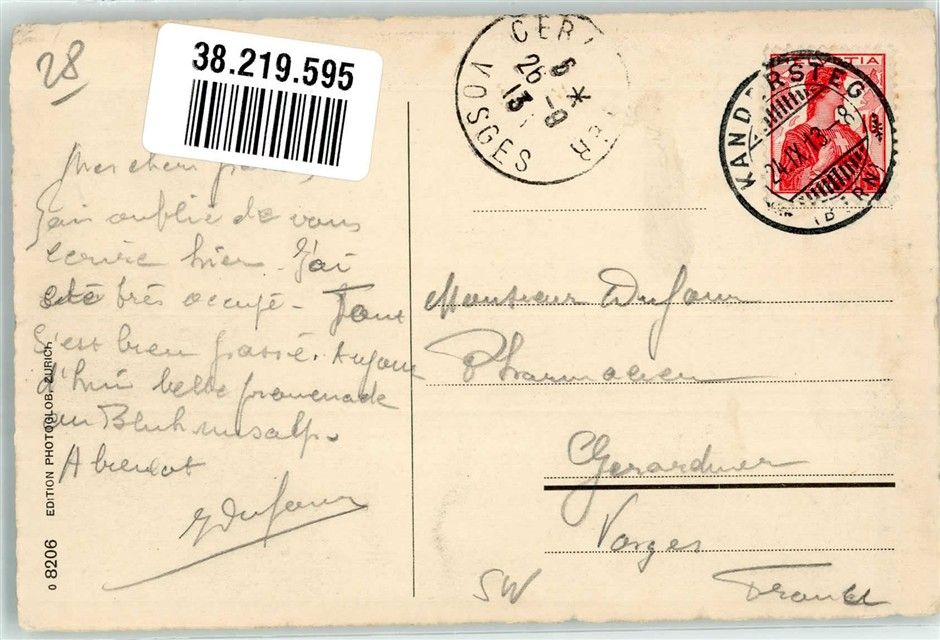 28
38.219.595
VOSGES
26 - 9
13
HELVETIA
KANDERSTEG
24.IX.13. - 8
(BERN)
Mes chers
J'ai oublié de vous
écrire hier. J'ai
été très occupé - Tout
s'est bien passé. Aujour
d'hui belle promenade
au Blühmisalp.
A bientot
Dufour
Monsieur Dufour
Pharmacien
Gerardmer
Vosges
France
SW
EDITION PHOTOGLOB, ZURICH
o 8206